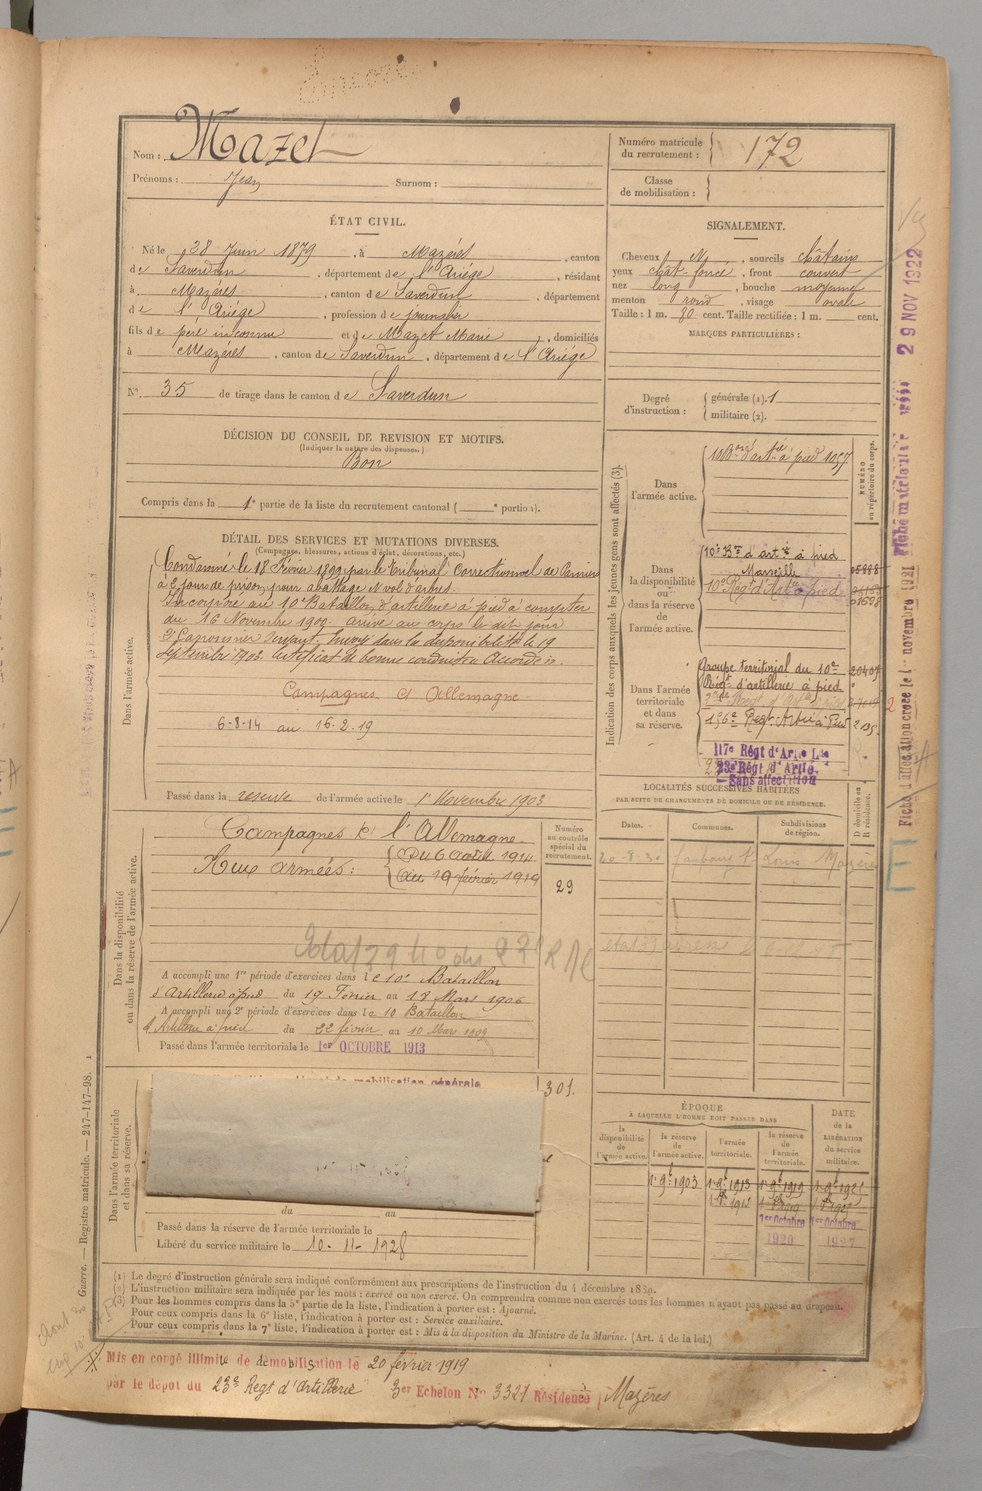 Nom : Mazet
Prénoms : Jean Surnom :
Numéro matricule du recrutement : 172
Classe de mobilisation :
ÉTAT CIVIL.
Né le 28 Juin 1879, à Mazéres, canton
de Saverdun, département de l'Ariége, résidant
à Mazéres, canton de Saverdun, département
de l'Ariége, profession de journalier
fils de pere inconnu et de Mazet Marie, domiciliés
à Mazéres, canton de Saverdun, département de l'Ariége
N° 35 de tirage dans le canton de Saverdun
DÉCISION DU CONSEIL DE REVISION ET MOTIFS.
(Indiquer la nature des dispenses.)
Bon
Compris dans la 1e partie de la liste du recrutement cantonal ( e portion).
SIGNALEMENT.
Cheveux N, sourcils châtains
yeux chât. foncé, front couvert
nez long, bouche moyenne
menton rond, visage ovale
Taille : 1 m. 80 cent. Taille rectifiée : 1 m. cent.
MARQUES PARTICULIÈRES :
Degré d'instruction : générale (1). 1
militaire (2).
DÉTAIL DES SERVICES ET MUTATIONS DIVERSES.
(Campagnes, blessures, actions d'éclat, décorations, etc.)
Dans l'armée active.
Condamné le 18 Février 1899 par le Tribunal Correctionnel de Pamiers
à 6 jours de prison pour abattage & vol d'arbres.
Incorporé au 10e Bataillon d'artillerie à pied à compter
du 16 Novembre 1900. arrivé au corps le dit jour
2e Canonnier Servant. Envoyé dans la disponibilité le 19
Septembre 1903. Certificat de bonne conduite Accordé.
Campagnes c/ Allemagne
6-8-14 au 16-2-19
Passé dans la reserve de l'armée active le 1er Novembre 1903
Indication des corps auxquels les jeunes gens sont affectés (3).
NUMÉRO au répertoire du corps.
Dans l'armée active.
10e Bon d'artie à pied 1057
Dans la disponibilité ou dans la réserve de l'armée active.
10e Bon d'artie à pied
Marseille 05888
10e Régt d'Artie à pied
Dans l'armée territoriale et dans sa réserve.
Groupe territorial du 10e 20407
Régt d'artillerie à pied
156e Régt Artie à Pied
117e Régt d'Artie Lde
23e Régt d'Artie
Sans affectation
Dans la disponibilité ou dans la réserve de l'armée active.
Campagnes c/ l'Allemagne
Aux armées : du 6 août 1914
au 19 février 1919
Numéro au contrôle spécial du recrutement.
29
A accompli une 1re période d'exercices dans le 10e Bataillon
d'Artillerie à pied du 19 Février au 18 Mars 1906
A accompli une 2e période d'exercices dans le 10 Bataillon
d'Artillerie à pied du 22 février au 10 Mars 1909
Passé dans l'armée territoriale le 1er OCTOBRE 1913
LOCALITÉS SUCCESSIVES HABITÉES
PAR SUITE DE CHANGEMENTS DE DOMICILE OU DE RÉSIDENCE.
Dates. Communes. Subdivisions de région. D domicile ou R résidence.
faubourg St Louis Mazères
Dans l'armée territoriale et dans sa réserve.
mobilisation générale
301.
du au
Passé dans la réserve de l'armée territoriale le
Libéré du service militaire le 10-11-1928
ÉPOQUE
À LAQUELLE L'HOMME DOIT PASSER DANS
la disponibilité de l'armée active.
la réserve de l'armée active.
l'armée territoriale.
la réserve de l'armée territoriale.
DATE de la LIBÉRATION du service militaire.
1er 9e 1903 1er 9e 1913 1er 9e 1919 1er 9e 1925
1er Octobre 1er Octobre
1920 1927
(1) Le degré d'instruction générale sera indiqué conformément aux prescriptions de l'instruction du 4 décembre 1830.
(2) L'instruction militaire sera indiquée par les mots : exercé ou non exercé. On comprendra comme non exercés tous les hommes n'ayant pas passé au drapeau.
(3) Pour les hommes compris dans la 5e partie de la liste, l'indication à porter est : Ajourné.
Pour ceux compris dans la 6e liste, l'indication à porter est : Service auxiliaire.
Pour ceux compris dans la 7e liste, l'indication à porter est : Mis à la disposition du Ministre de la Marine. (Art. 4 de la loi.)
Mis en congé illimité de démobilisation le 20 février 1919
par le dépôt du 23e Régt d'Artillerie 3er Echelon No 3321 Résidence Mazères
Guerre. — Registre matricule. — 247-147-98.
29 NOV 1922